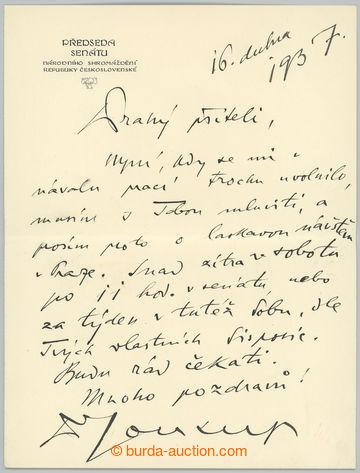 PŘEDSEDA
SENÁTU
NÁRODNÍHO SHROMÁŽDĚNÍ
REPUBLIKY ČESKOSLOVENSKÉ
16. dubna
1937.
Drahý příteli,
nyní, kdy se mi v
návalu prací trochu uvolnilo,
musím s Tebou mluviti, a
prosím proto o laskavou návštěvu
v Praze. Snad zítra v sobotu
po 11 hod. v senátu, nebo
za týden v tutéž dobu, dle
Tvých vlastních disposic.
Budu rád čekati.
Mnoho pozdravů!
© burda-auction.com